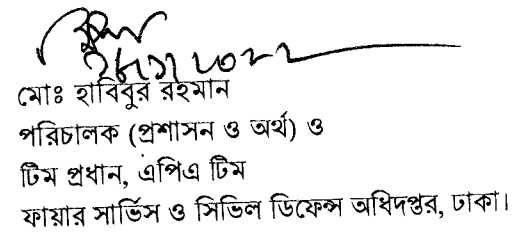 মোঃ হাবিবুর রহমান
পরিচালক (প্রশাসন ও অর্থ) ও
টিম প্রধান, এপিএ টিম
ফায়ার সার্ভিস ও সিভিল ডিফেন্স অধিদপ্তর, ঢাকা।